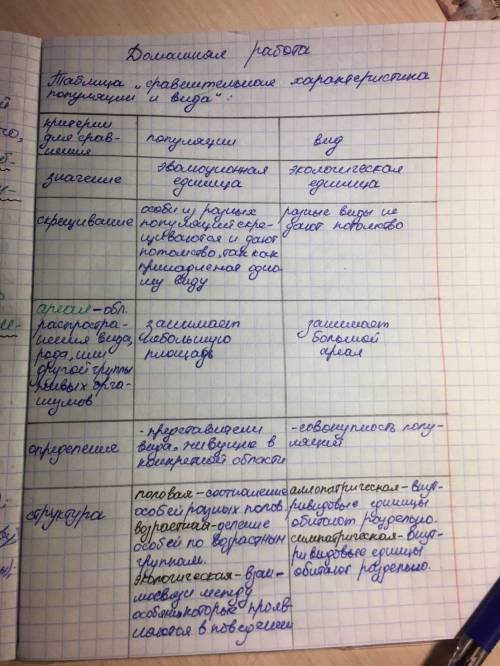 Домашняя работа
Таблица „сравнительная характеристика
популяции и вида":
критерии
для срав-
нения
популяции
вид
значение
эволюционная
единица
экологическая
единица
скрещивание
особи из разных
популяций скре-
щиваются и дают
потомство, так как
принадлежат одно-
му виду
разные виды не
дают потомство
ареал - обл.
распростра-
нения вида,
рода, или
другой группы
живых орга-
низмов
занимает
небольшую
площадь
занимает
большой
ареал
определение
-представители
вида, живущие в
конкретной области
-совокупность попу-
ляций
структура
половая - соотношение
особей разных полов.
возрастная - деление
особей по возрастным
группам.
экологическая - взаи-
мосвязи между
особями, которые прояв-
ляются в поведении
аллопатрическая - внут-
ривидовые единицы
обитают раздельно.
симпатрическая - внут-
ривидовые единицы
обитают раздельно.